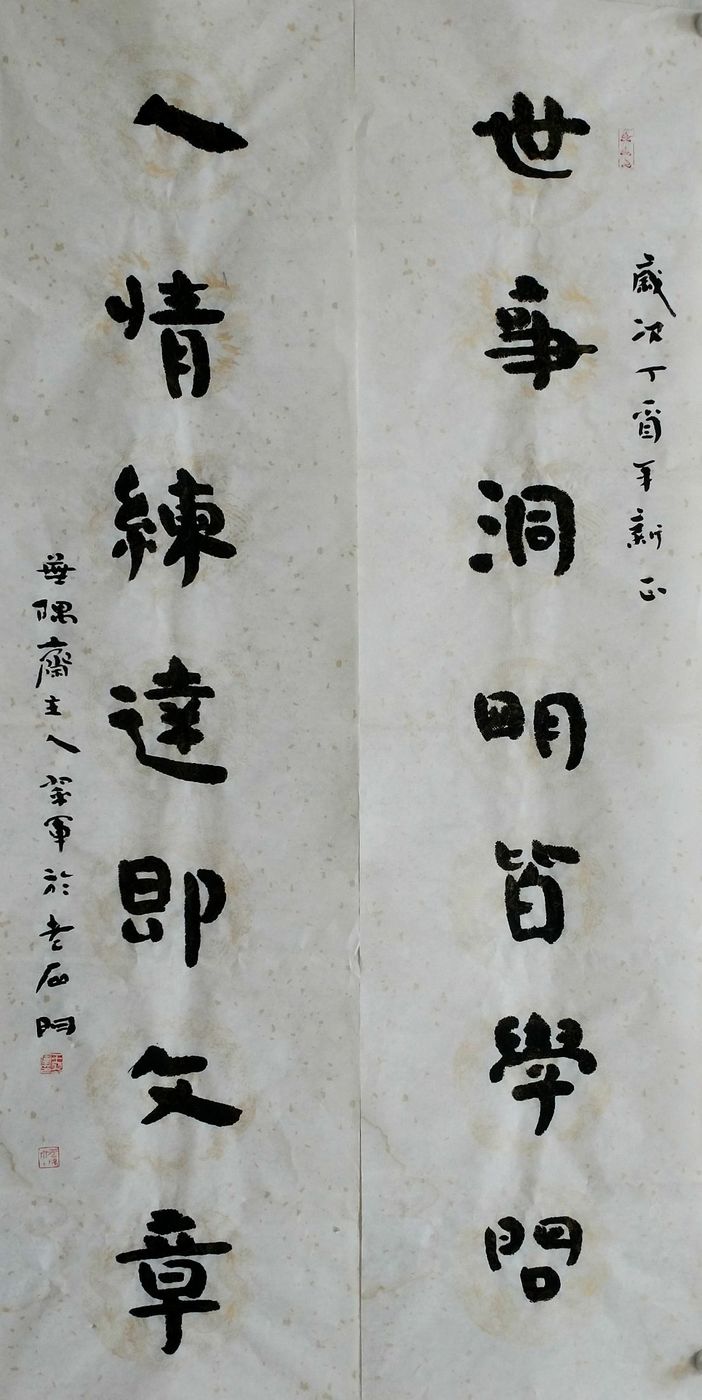 歲次丁酉年新正
世事洞明皆學問
人情練達即文章
無隅齋主人軍於老石門